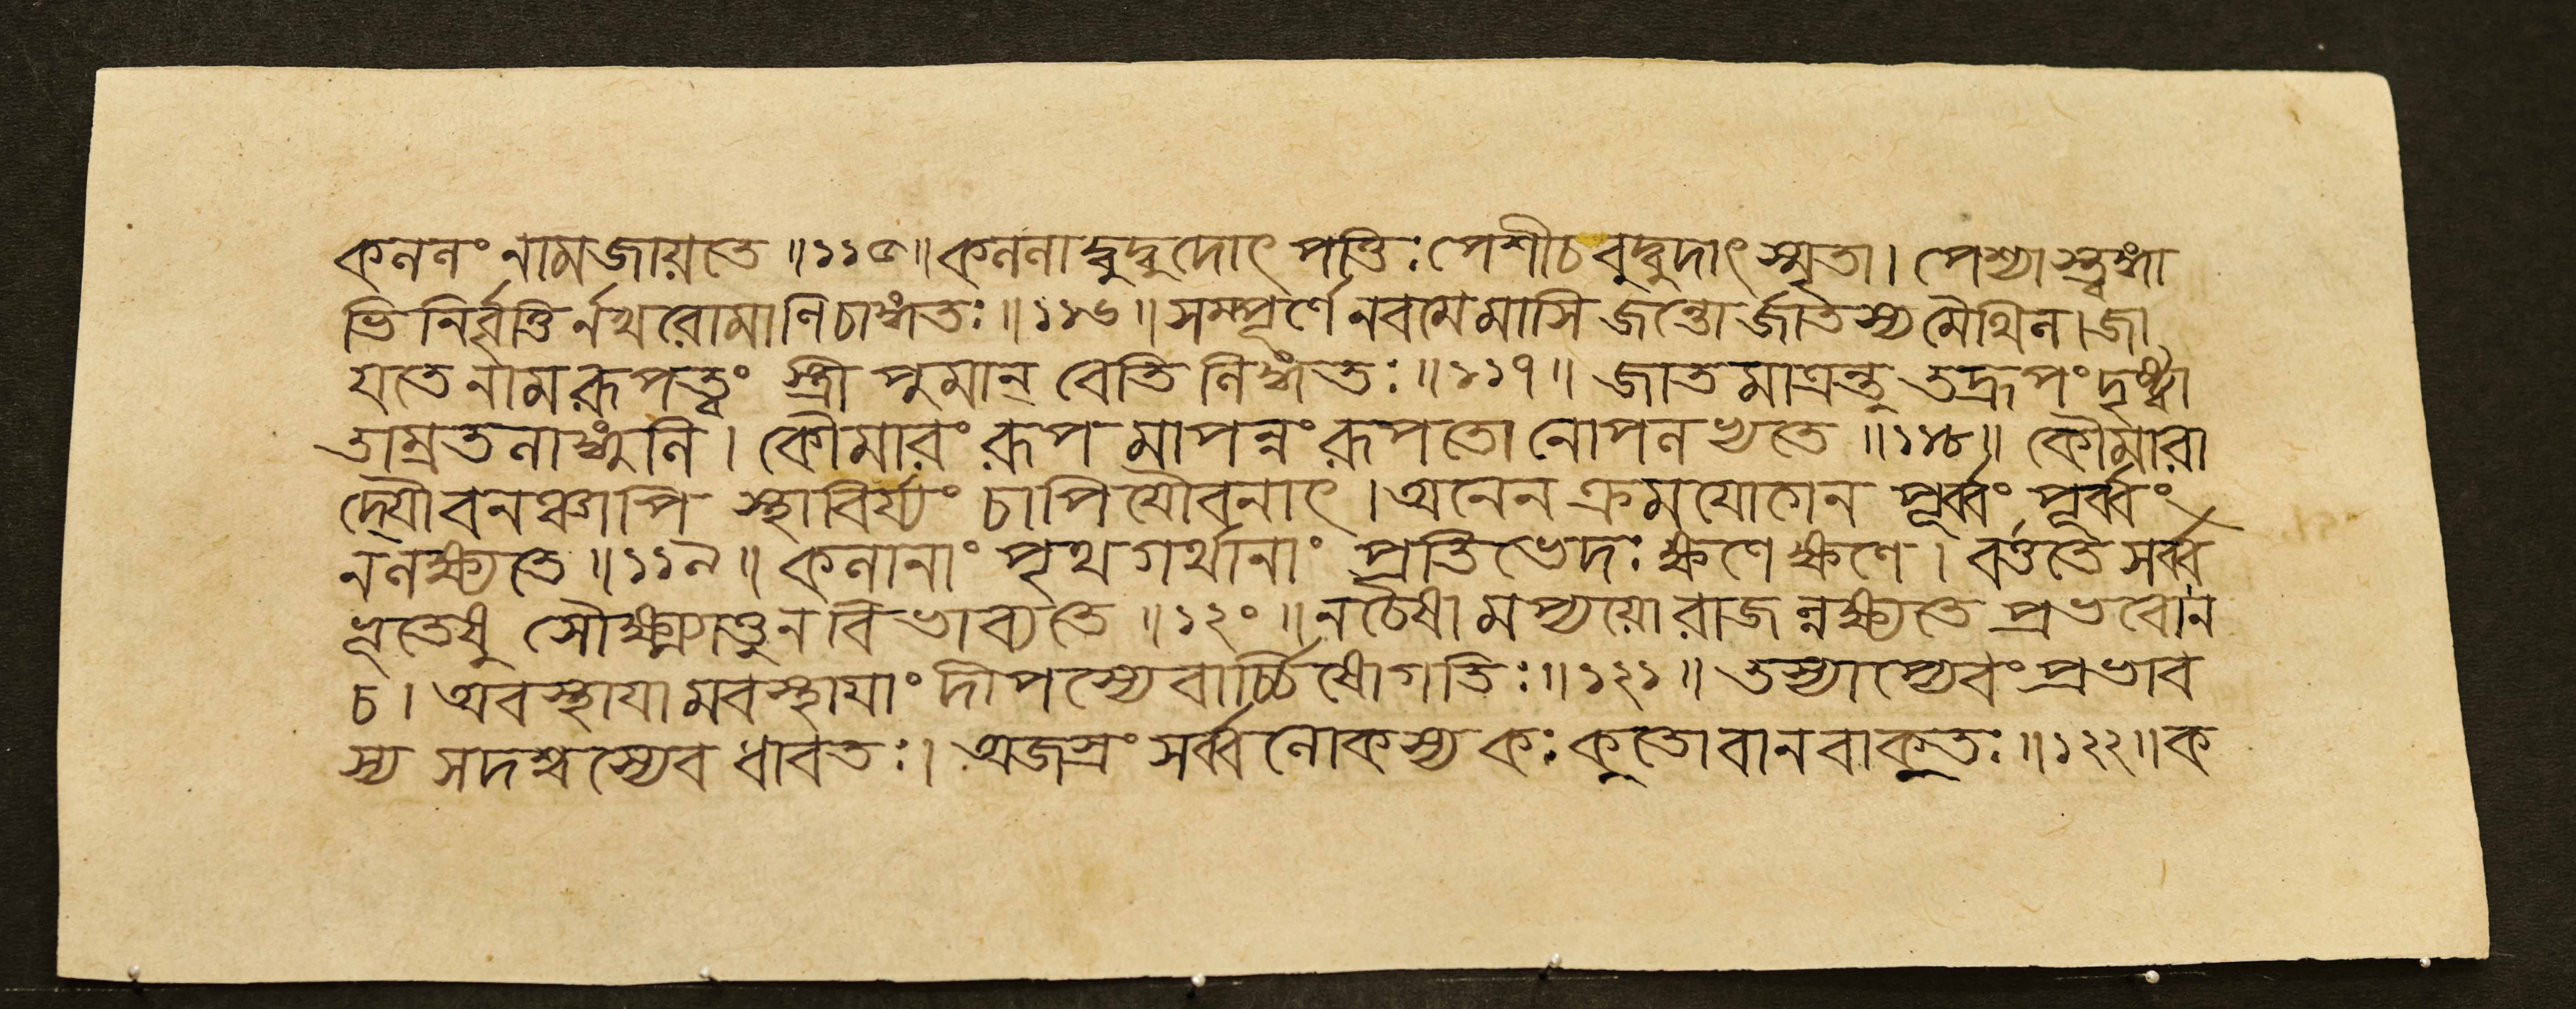 কললং নাম জায়তে ॥১১৫॥ কললাদ্বুদ্বুদোৎপত্তিঃ পেশী চ বুদ্বুদাৎ স্মৃতা। পেশ্যাস্ত্বঙ্গা
ভিনির্বৃত্তির্নখরোমাণি চাঙ্গতঃ॥১১৬॥ সম্পূর্ণে নবমে মাসি জন্তোর্জাতস্য মৈথিল। জা
যতে নামরূপত্বং স্ত্রী পুমান্ বেতি লিঙ্গতঃ॥১১৭॥ জাতমাত্রন্তু তদ্রূপং দৃষ্ট্বা
তাম্রতলাঙ্গুলি। কৌমারং রূপমাপন্নং রূপতো নোপলভ্যতে ॥১১৮॥ কৌমারা
দ্যৌবনঞ্চাপি স্থাবির্য্যং চাপি যৌবনাৎ। অনেন ক্রমযোগেন পূর্ব্বং পূর্ব্বং
ন লক্ষ্যতে ॥১১৯॥ কলানাং পৃথগর্থানাং প্রতিভেদঃ ক্ষণে ক্ষণে। বর্ত্ততে সর্ব্ব
ভূতেষু সৌক্ষ্ম্যাত্তু ন বিভাব্যতে ॥১২০॥ ন চৈষামপ্যয়ো রাজন্নক্ষ্যতে প্রভবো ন
চ। অবস্থাযামবস্থাযাং দীপস্যেবার্চ্চিষো গতিঃ॥১২১॥ তস্যাপ্যেবং প্রভাব
স্য সদশ্বস্যেব ধাবতঃ। অজস্রং সর্ব্বলোকস্য কঃ কুতো বা ন বা কুতঃ॥১২২॥ ক